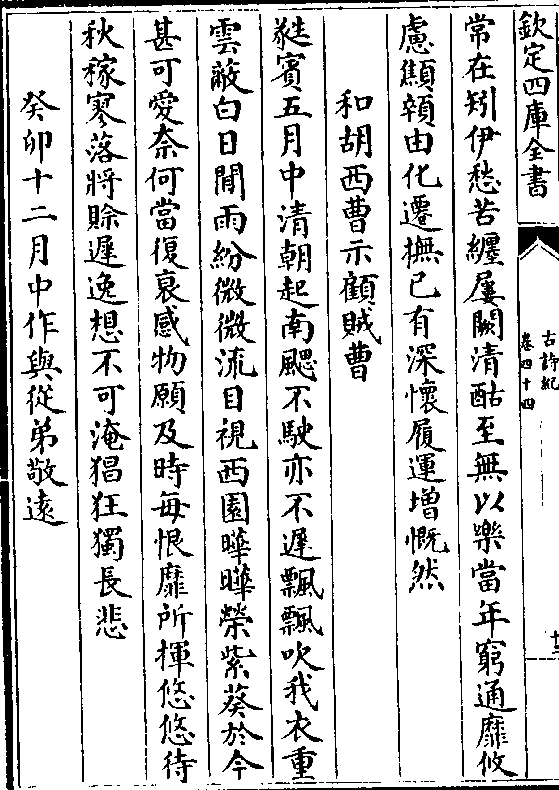 欽定四庫全書
古詩紀
卷四十四
常在矧伊愁苦纒屢闕清酤至無以樂當年窮通靡攸
慮顦顇由化遷撫已有深懷履運增慨然
和胡西曹示顧賊曹
蕤賓五月中清朝起南颸不駛亦不遲飄飄吹我衣重
雲蔽白日閒雨紛微微流目視西園曄曄榮紫葵於今
甚可愛奈何當復衰感物願及時每恨靡所揮悠悠待
秋稼寥落將賒遲逸想不可淹猖狂獨長悲
癸卯十二月中作與從弟敬遠